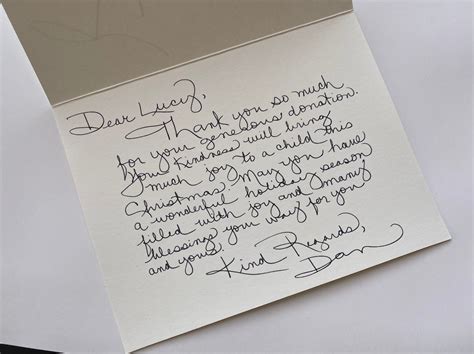 Dear Lucy,
Thank you so much
for your generous donation.
Your kindness will bring
much joy to a child this
Christmas. May you have
a wonderful holiday season
filled with joy and many
blessings your way for you
and yours.
Kind Regards,
Dan